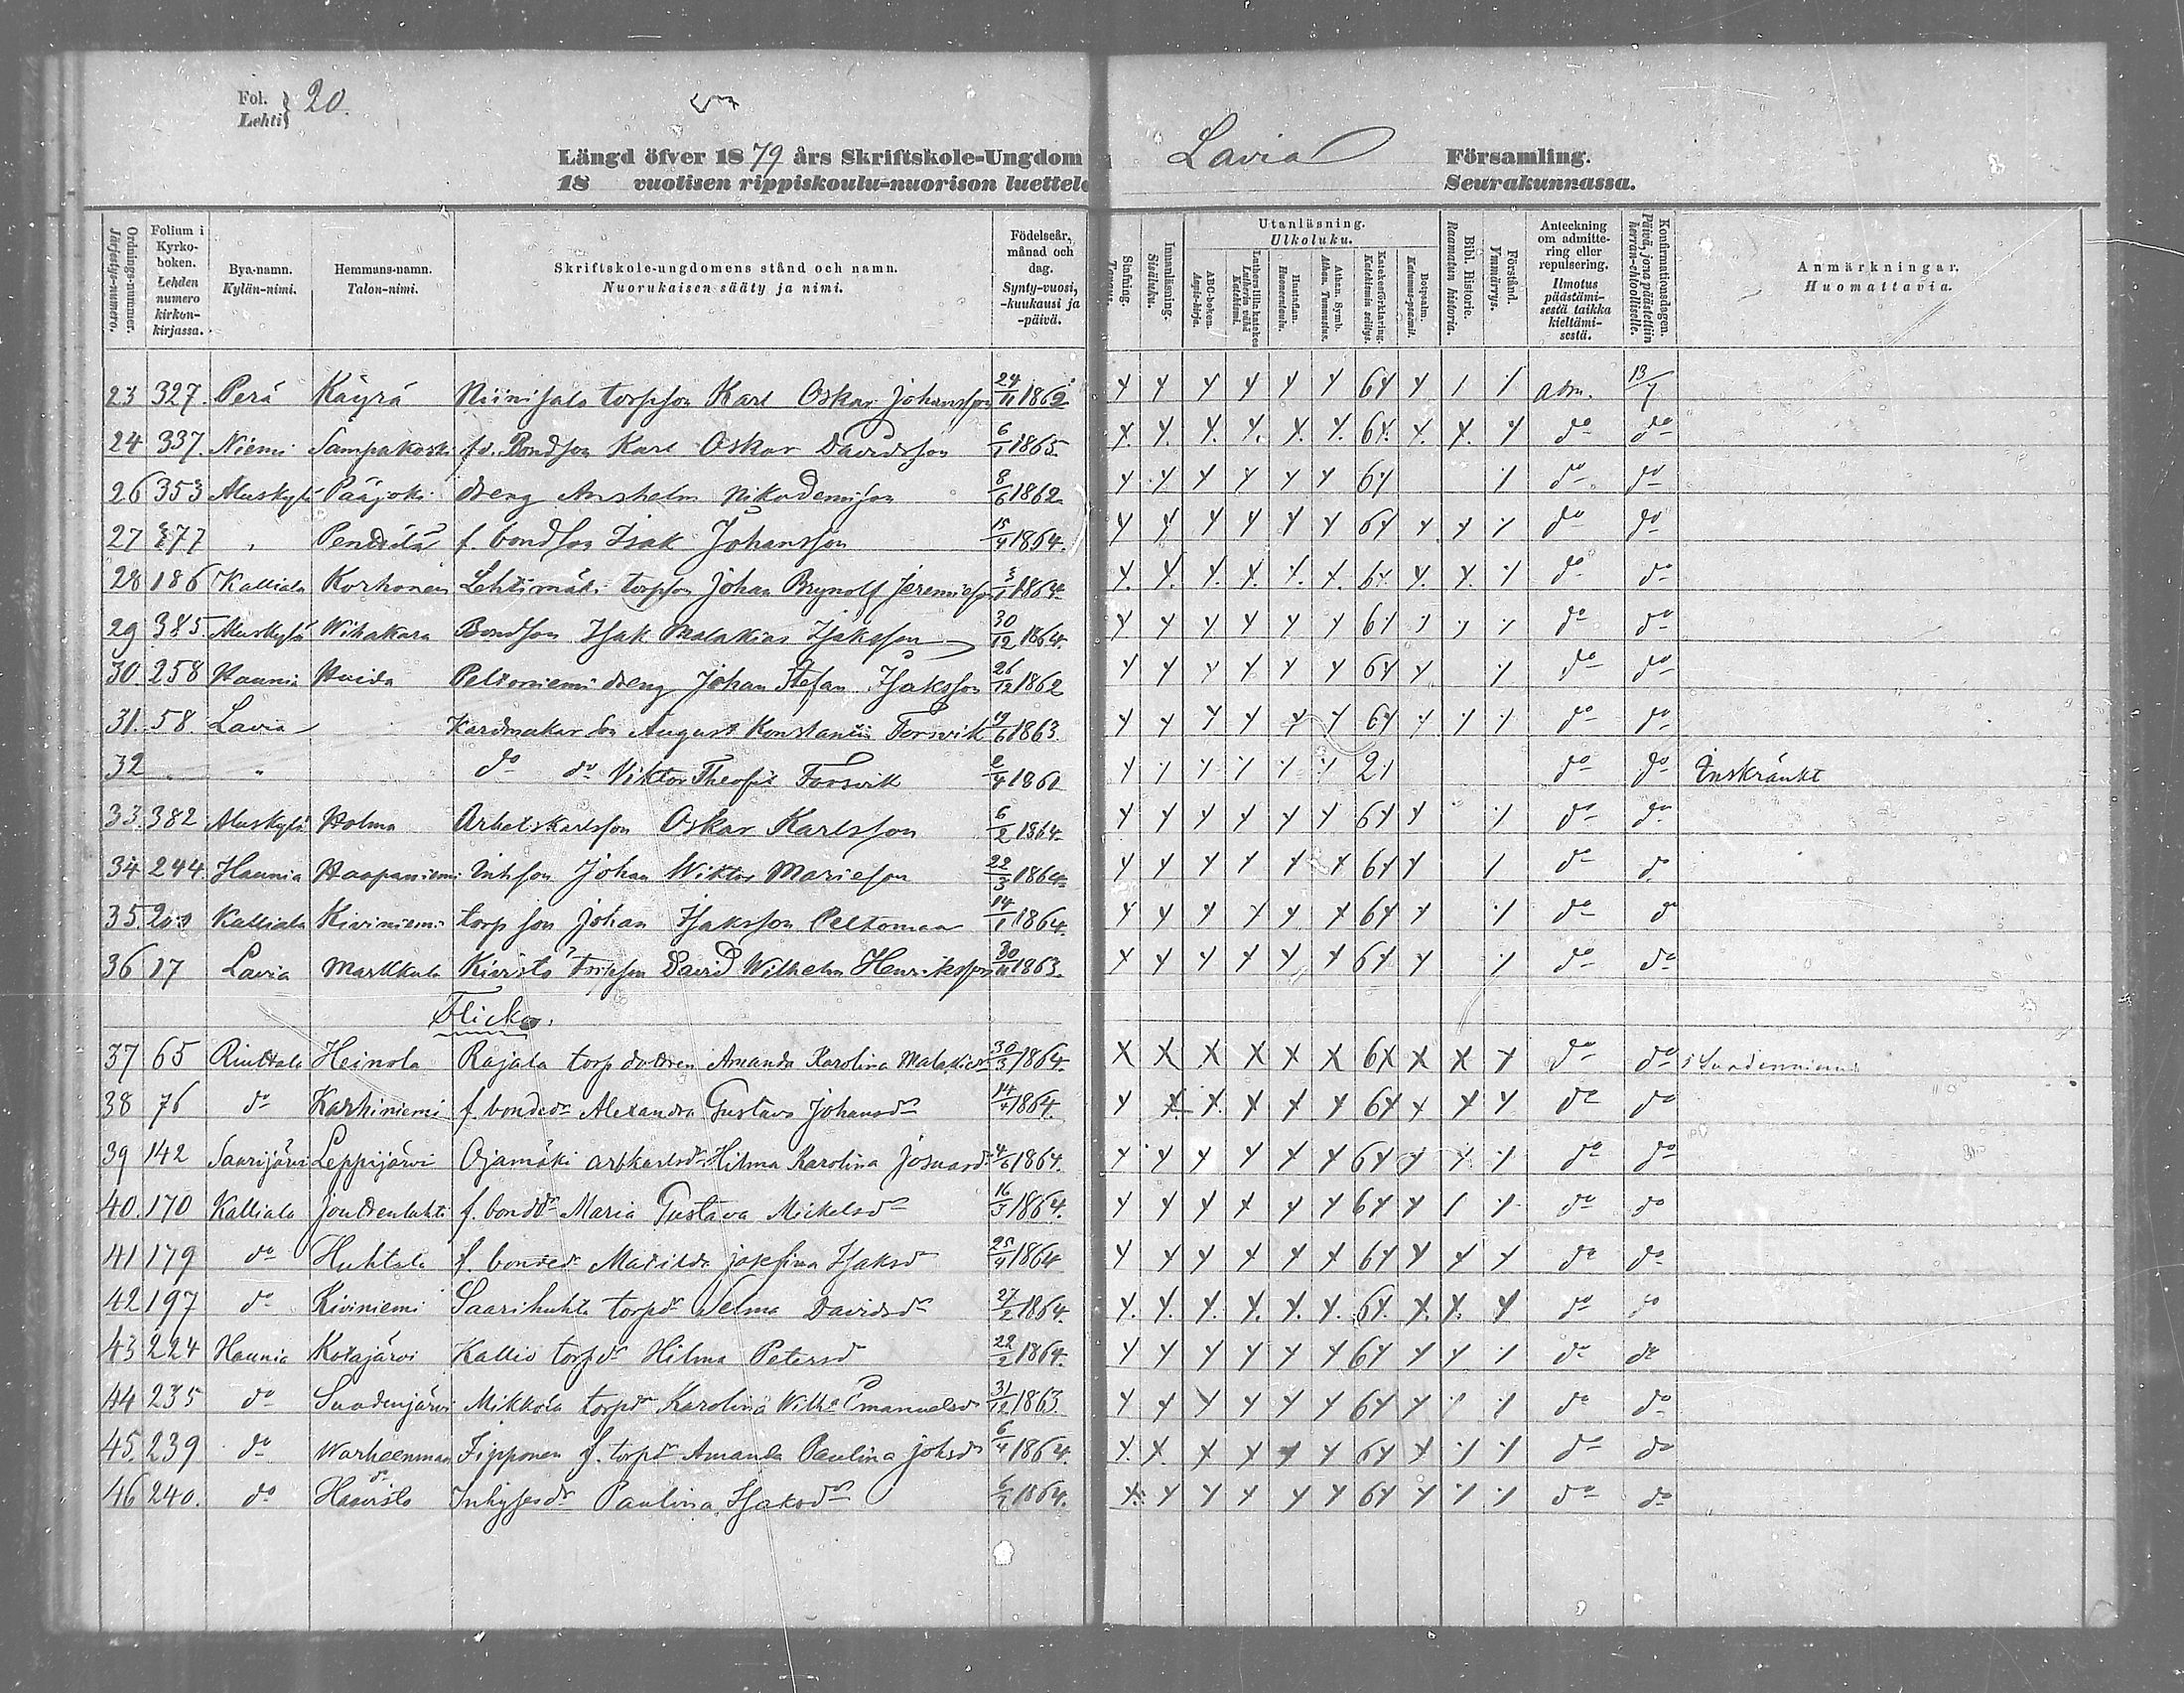 Fol. Lehti } 20.
Längd öfver 1879 års Skriftskole-Ungdom i Lavia Församling.
18 vuotisen rippiskoulu-nuorison luettelo Seurakunnassa.
Ordnings-nummer. Järjestys-numero.
Folium i Kyrko-boken. Lehden numero kirkon-kirjassa.
Bya-namn. Kylän-nimi.
Hemmans-namn. Talon-nimi.
Skriftskole-ungdomens stånd och namn. Nuorukaisen sääty ja nimi.
Födelseår, månad och dag. Synty-vuosi, -kuukausi ja -päivä.
Stafning. Tavaus.
Innanläsning. Sisäluku.
Utanläsning. Ulkoluku.
ABC-boken. Aapis-kirja.
Luthers lilla katekes. Lutherin vähä Katekismi.
Hustaflan. Huoneentaulu.
Athan. Symb. Athan. Tunnustus.
Katekesförklaring. Katekismin selitys.
Botpsalm. Katumus-psalmit.
Bibl. Historie. Raamatun historia.
Förstånd. Ymmärrys.
Anteckning om admittering eller repulsering. Ilmotus päästämisestä taikka kieltämisestä.
Konfirmationsdagen. Päivä, jona päästettiin herran-ehtoolliselle.
Anmärkningar. Huomattavia.
23 327. Perä Käyrä Niinisalo torpson Karl Oskar Johansson 24/11 1862 y y y y y y 6y y / ⁒ adm. 13/7
24 337. Niemi Sampakoski f.d. Bondson Karl Oskar Davidsson 6/1 1865. y. y. y. y. y. y. 6y. y. y. y do do
26 353 Aluskylä Pääjoki dreng Anshelm Nikodemisson 8/6 1862 y y y y y y 6y ⁒ do do
27 377 " f. bondson Isak Johansson 15/4 1864. y y y y y y 6y y y ⁒ do do
28 186 Kalliala Korhonen Lehtimäki torpson Johan Brynolf Jeremiesson 1864 y. y. y. y. y. y. 6y. y. y. ⁒ do do
29 385 Aluskylä Wihakara Bondson Isak Malakias Isaksson 30/12 1864. y y y y y y 6y ⁒ ⁒ ⁒ do do
30. 258 Haunia Peltoniemi dreng Johan Stefan Isaksson 26/12 1862 y y y y y y 6y y ⁒ do do
31. 58. Lavia Kardmakar son August Konstantin Forsvik 19/6 1863 y y y y y y 6y ⁒ ⁒ ⁒ do do
32 " " do do Viktor Theofil Forsvik y ⁒ ⁒ ⁒ ⁒ ⁒ 2⁒ do do Inskränkt
33. 382 Aluskylä Holma Arbetskarlsson Oskar Karlsson 6/2 1864. y y y y y y 6y y ⁒ do do
34 244. Haunia Haapaniemi Inhson Johan Wiktor Marieson 22/3 1864 y y y y y y 6y y / do do
35. Kalliala Kiviniemi torpson Johan Isaksson Peltomaa 14/1 1864. y y y y y y 6y y ⁒ do do
36 17 Lavia Markkula Kiviistö torpson David Wilhelm Henriksson 30/11 1863. y y y y y y 6y y ⁒ do do
Flickor.
37 65 Riuttala Heinola Rajala torp dottren Amanda Karolina Malakiasdr 30/3 1864. X X X X X X 6X X X y do do i Suodenniemi
38 76 do Karhiniemi f. bondedr Alexandra Gustava Johansdr 14/4 1864. y X X. y y y 6y y y y do do
39 142 Saarijärvi Leppijärvi Ojamäki arbkarlsdr Hilma Karolina Josuasdr 4/6 1864. y y y y y y 6y y y ⁒ do do
40. 170 Kalliala Joutsenlahti f. bonddr Maria Gustava Mickelsdr 16/3 1864. y y y y y y 6y y / ⁒ do do
41 179 do Huhtala f. bondedr Matilda Josefina Isaksdr 25/4 1864 y y y y y y 6y y y y do do
42 197 do Kiviniemi Saarihuhta torpdr Selma Davidsdr 27/2 1864. y. y. y. y. y. y. 6y. y. y. y do do
43 224 Haunia Kotajärvi Kallio torpdr Hilma Petersdr 22/2 1864. y y y y y y 6y y y ⁒ do do
44 235 do Suodenjärvi Mikkola torpdr Karolina Wilha Emanuelsdr 31/12 1863 y y y y y y 6y y ⁒ ⁒ do do
45. 239 do Warheenmaa Jipponen f. torpdr Amanda Paulina Johsdr 6/4 1864. y. y. y y y y 6y y ⁒ ⁒ do do
46 240. do do Haavisto Inhysesdr Paulina Isaksdr 1864. y y y y y y 6y y ⁒ ⁒ do do